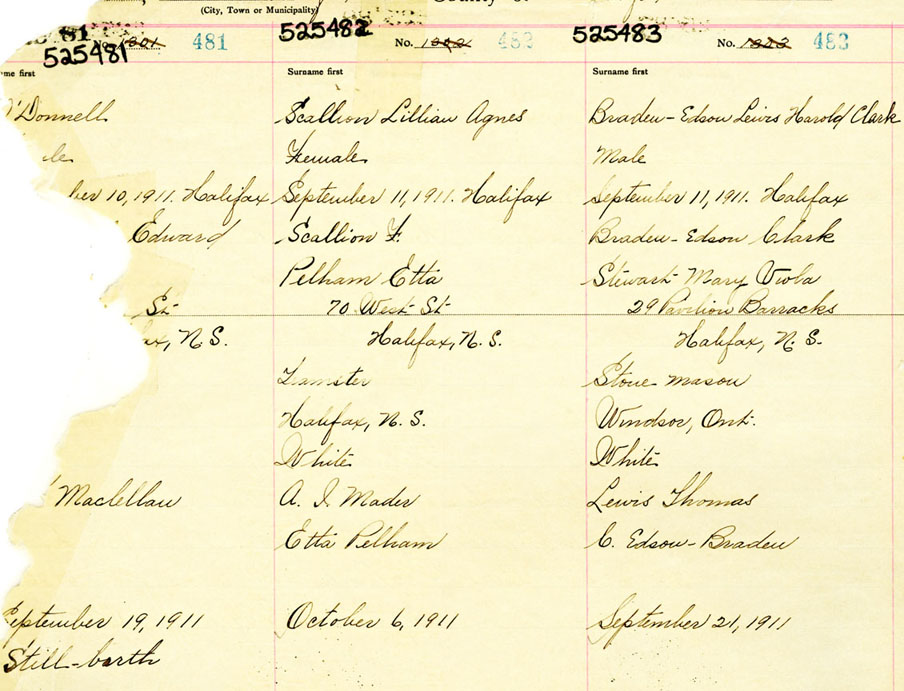 (City, Town or Municipality)
481
525481
1301 481
me first
O'Donnell
le
ber 10, 1911. Halifax
Edward
St.
ax, N.S.
Maclellan
September 19, 1911
Still-barth
525482
No. 482
Surname first
Scallion Lillian Agnes
Female
September 11, 1911. Halifax
Scallion F.
Pelham Etta
70 West St.
Halifax, N.S.
Teamster
Halifax, N.S.
White
A. I. Mader
Etta Pelham
October 6, 1911
525483
No. 1303 483
Surname first
Braden-Edson Lewis Harold Clark
Male
September 11, 1911. Halifax
Braden-Edson Clark
Stewart Mary Viola
29 Pavilion Barracks
Halifax, N.S.
Stone mason
Windsor, Ont.
White
Lewis Thomas
C. Edson-Braden
September 21, 1911